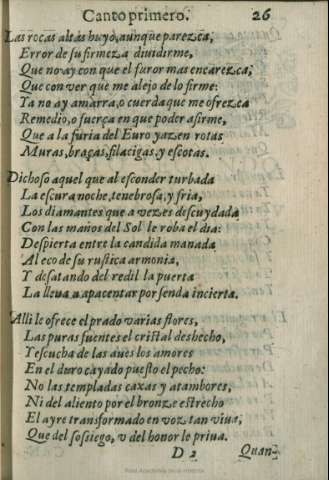 Canto primero. 26
Las rocas altas huyò, aunque parezca,
Error de su firmeza diuidirme,
Que no ay con que el furor mas encarezca,
Que con ver que me alejo de lo firme:
Ya no ay amarra, o cuerda que me ofrezca
Remedio, o fuerça en que poder asirme,
Que a la furia del Euro yazen rotas
Muras, braças, filacigas, y escotas.
Dichoso aquel que al esconder turbada
La escura noche, tenebrosa, y fria,
Los diamantes que a vezes descuydada
Con las manos del Sol le roba el dia:
Despierta entre la candida manada
Al eco de su rustica armonia,
Y desatando del redil la puerta
La lleua a apacentar por senda incierta.
Alli le ofrece el prado varias flores,
Las puras fuentes el cristal deshecho,
Y escucha de las aues los amores
En el duro cayado puesto el pecho:
No las templadas caxas y atambores,
Ni del aliento por el bronze estrecho
El ayre transformado en voz tan viua,
Que del sossiego, v del honor le priua.
D 2 Quan-